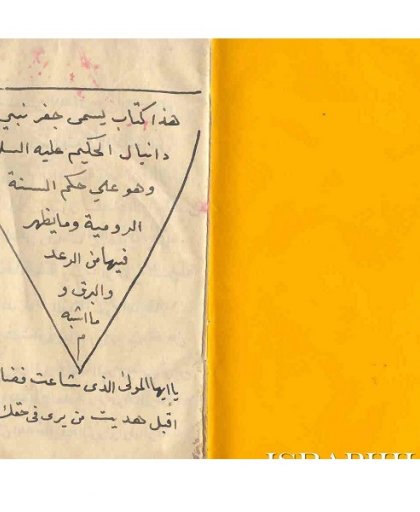 هذا كتاب يسمى جفر نبي
دانيال الحكيم عليه السلا
وهو علي حكم السنة
الرومية وما يظهر
فيها من الرعد
والبرق و
ما اشبه
م
يا ايها المولىٰ الذى شاعت فضا
اقبل هديت من يرى فى حقك